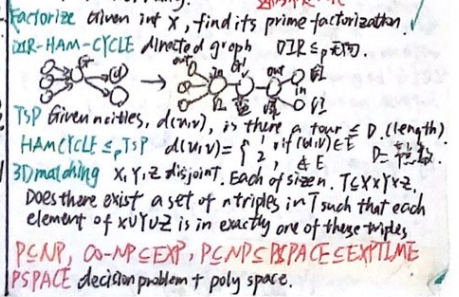 Factorize Given int x, find its prime factorization.
DIR-HAM-CYCLE directed graph DIR ≤p 无向.
TSP Given n cities, d(u,v), is there a tour ≤ D. (length)
HAM CYCLE ≤p TSP d(u,v) = { 1, if (u,v)∈E
2, ∉ E D=
3D matching X, Y, Z disjoint. Each of size n. T⊆X×Y×Z.
Does there exist a set of n triples in T such that each
element of X∪Y∪Z is in exactly one of these triples
P⊆NP, Co-NP⊆EXP, P⊆NP⊆PSPACE⊆EXPTIME
PSPACE decision problem + poly space.